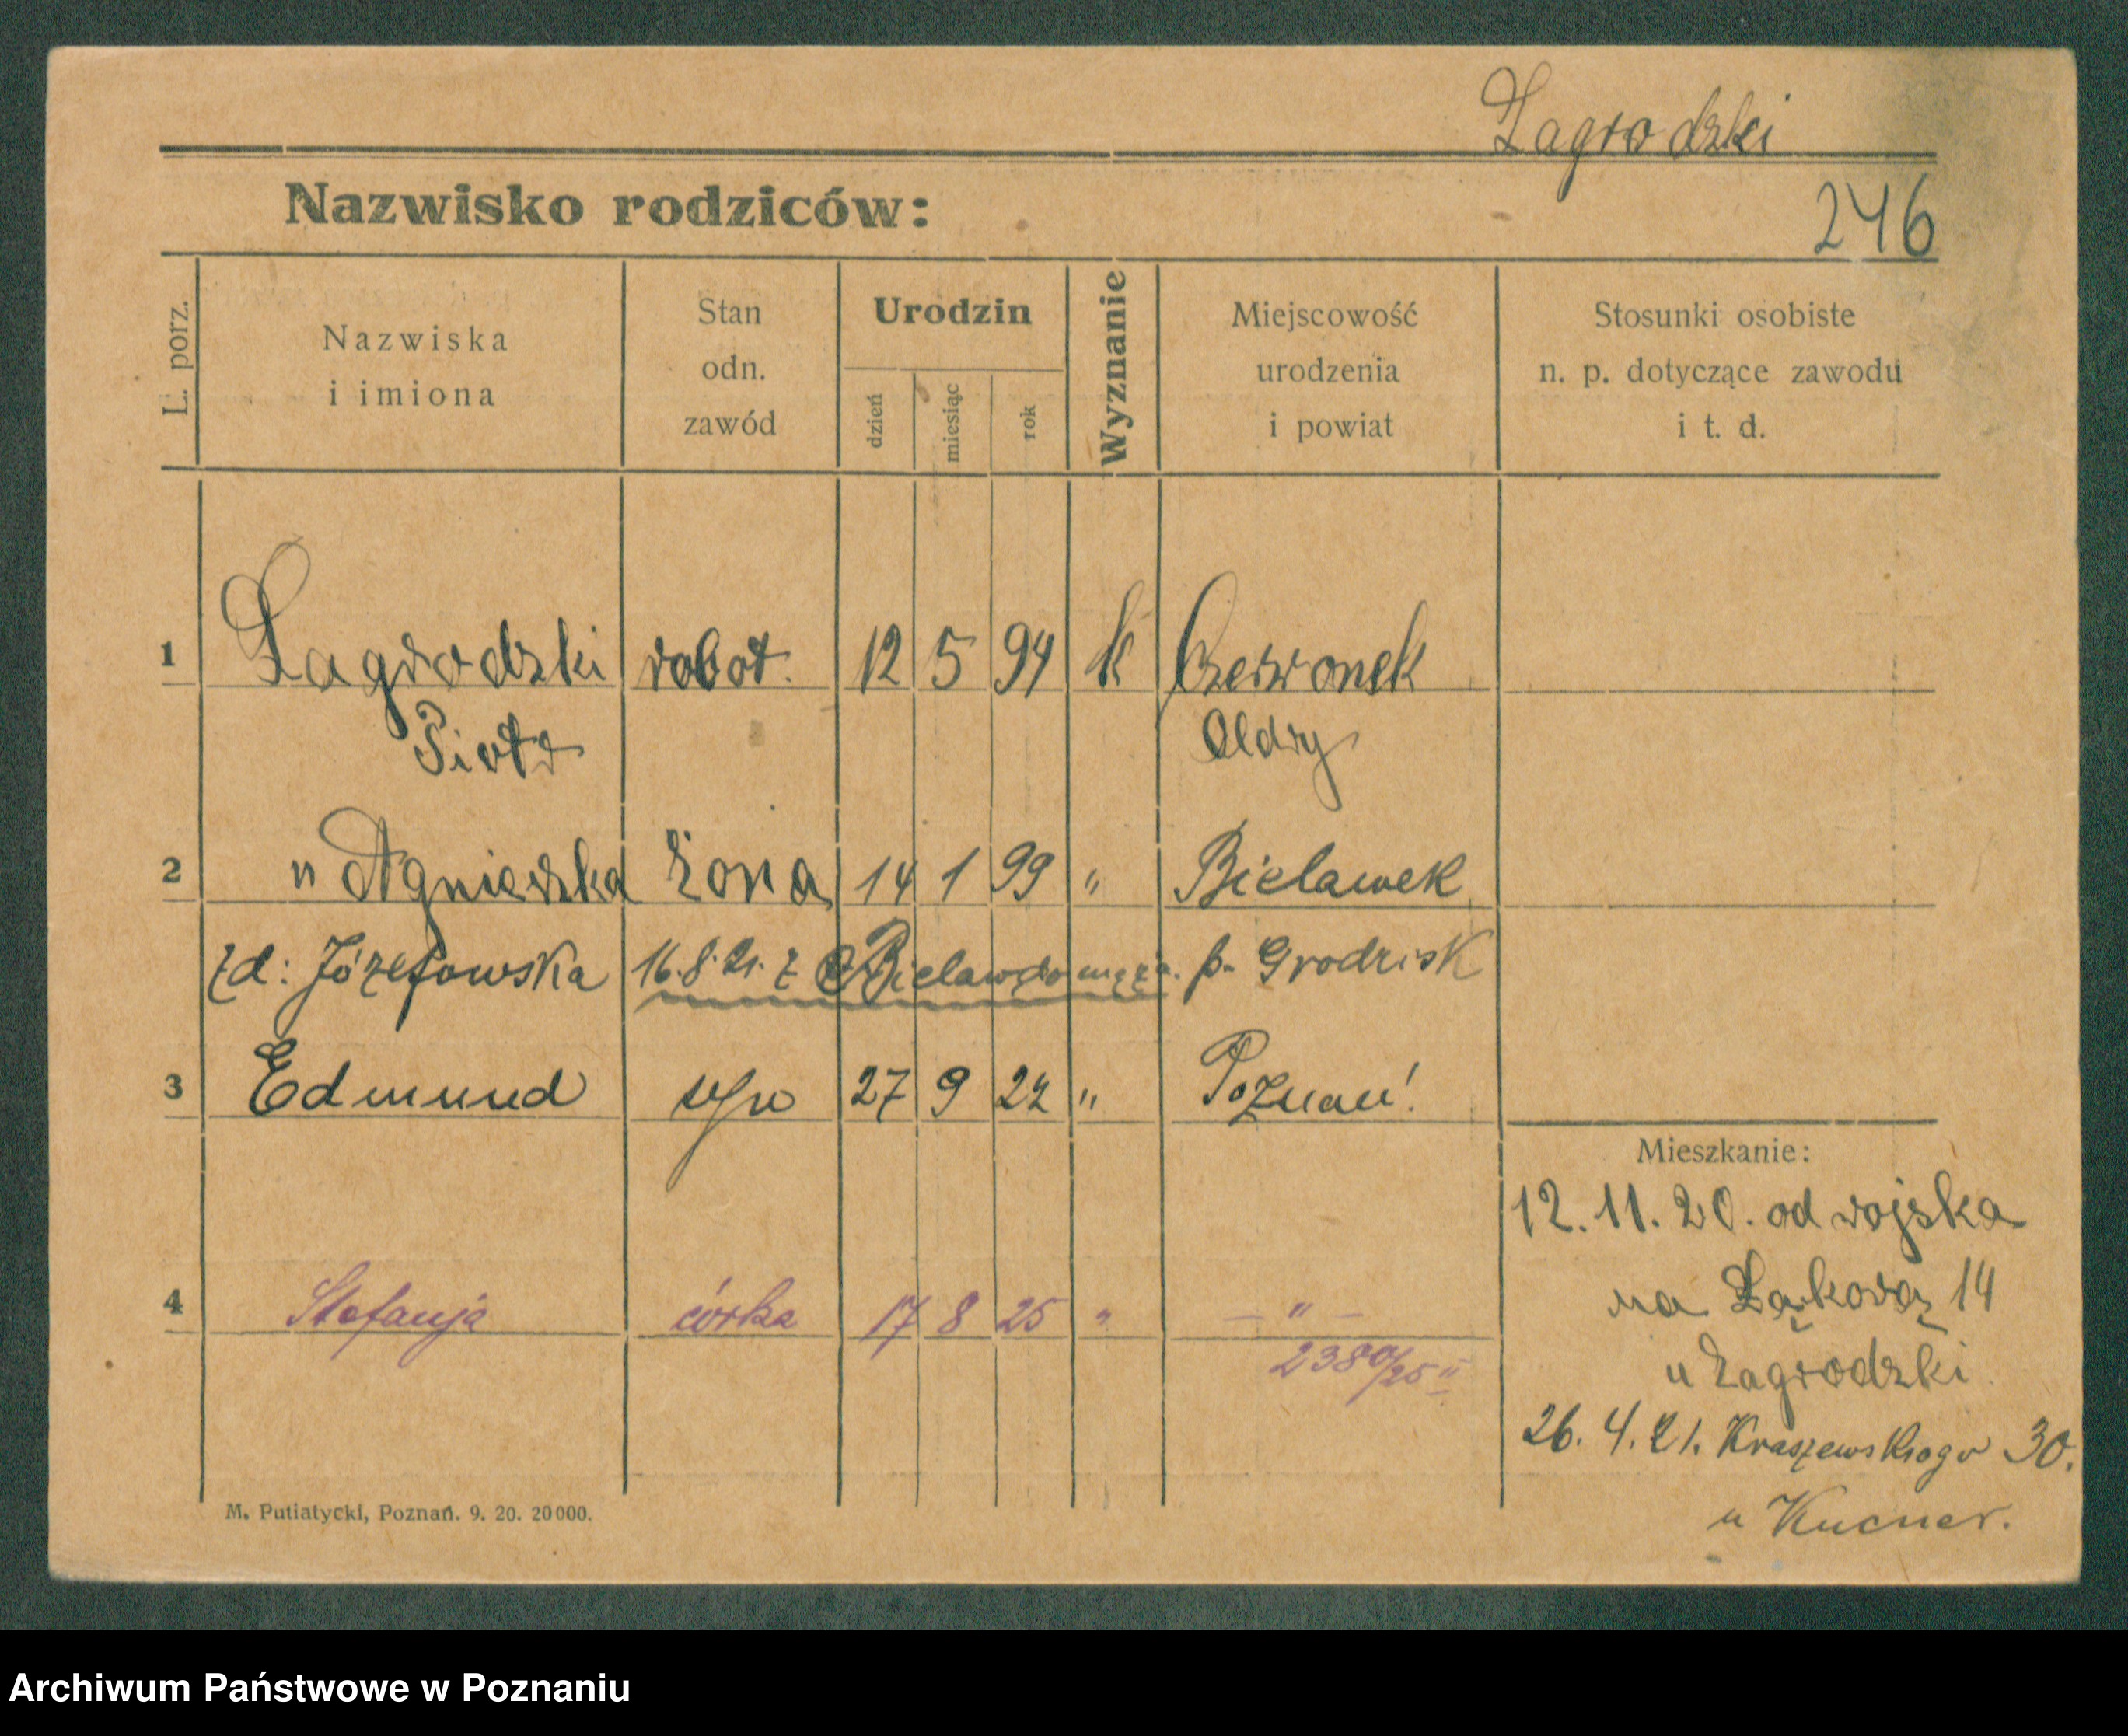 Zagrodzki
Nazwisko rodziców:
246
L. porz.
Nazwiska
i imiona
Stan
odn.
zawód
Urodzin
dzień
miesiąc
rok
Wyznanie
Miejscowość
urodzenia
i powiat
Stosunki osobiste
n. p. dotyczące zawodu
i t. d.
1 Zagrodzki robot. 12 5 94 k Czerwonek
Piotr
2 " Agnieszka żona 14 1 99 " Bielawek
zd: Józefowska 16.8.21. z Bielaw do męża. p. Grodzisk
3 Edmund syn 27 9 22 " Poznań!
Mieszkanie:
12.11.20. od wojska
na Łąkową 14
4 Stefanja córka 17 8 25 " — " —
2380/25 II
u Zagrodzki
26.4.21. Kraszewskiego 30.
u Kucner.
M. Putiatycki, Poznań. 9. 20. 20000.
Archiwum Państwowe w Poznaniu